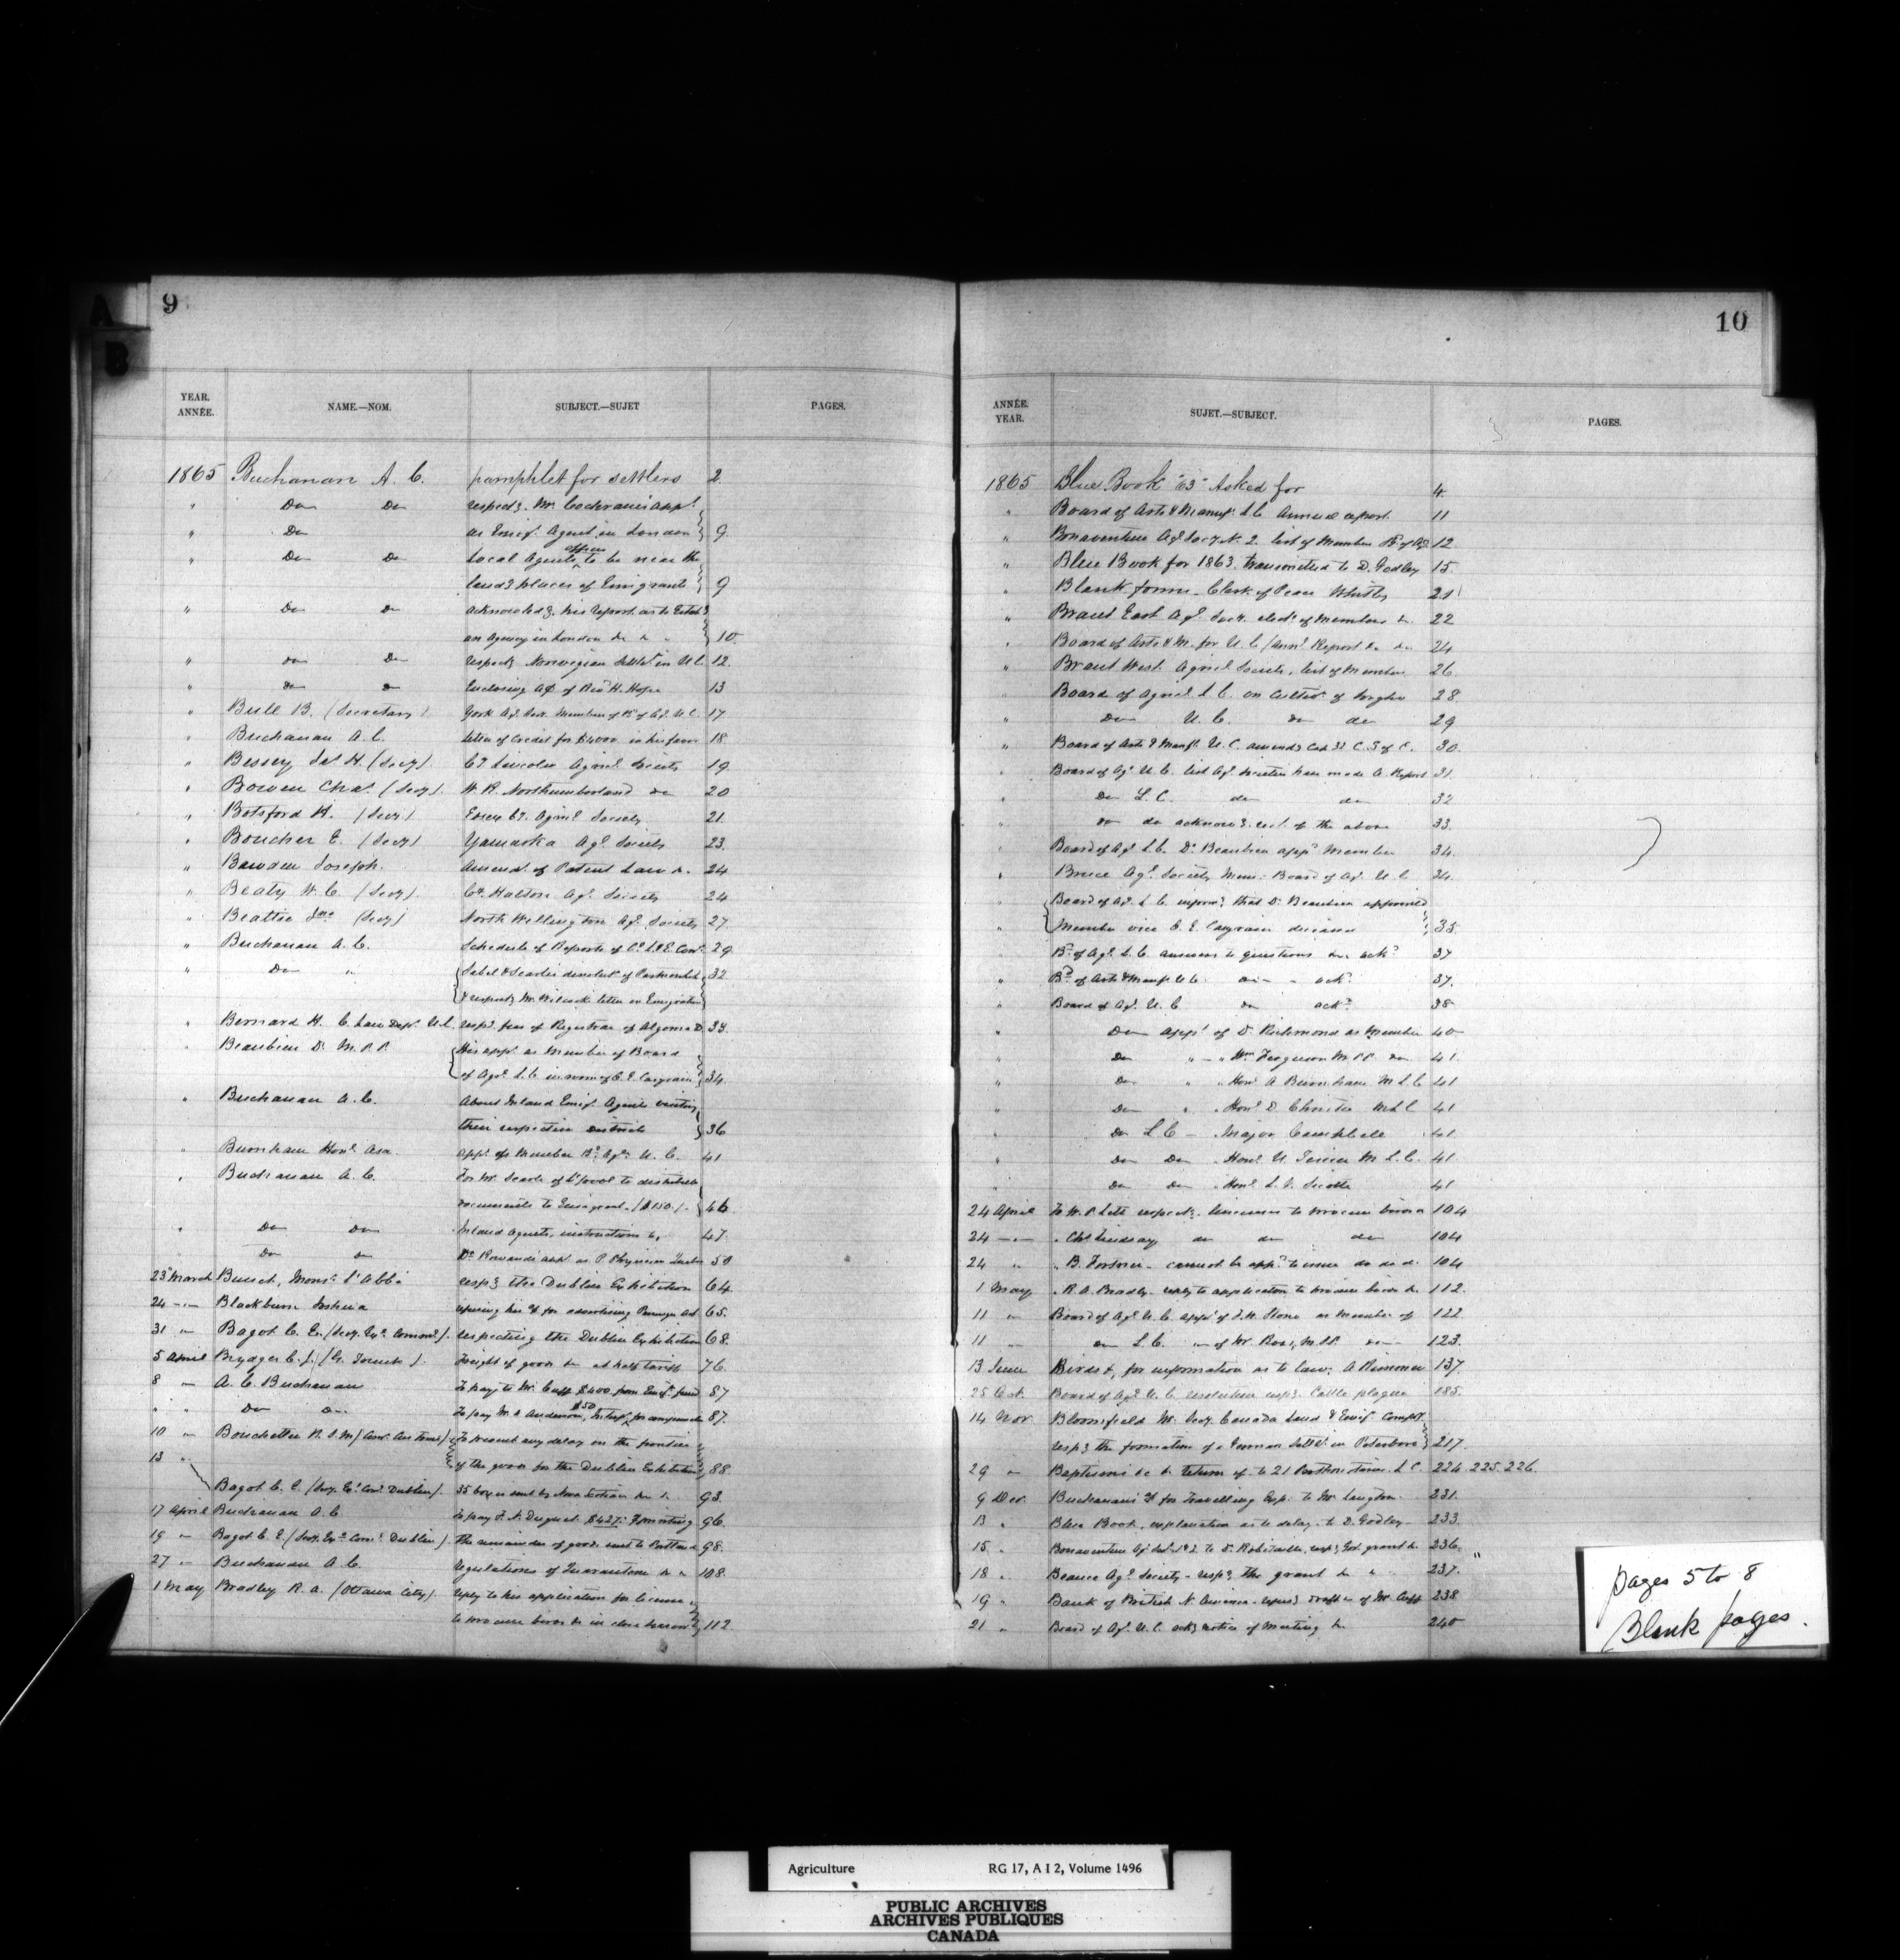 A
B
9
YEAR.
ANNÉE.
NAME.—NOM.
SUBJECT.—SUJET
PAGES.
1865 Buchanan A. C. pamphlet for settlers 2.
" Do Do respectg. Mr. Cochrane's appt.
" Do as Emigt. Agent in London 9.
" Do Do Local Agents offices to be near the
landg places of Emigrants 9
" Do Do acknowledg. his report as to Establg
an Agency in London Do 10.
" do Do respectg Norwegian Settlt. in U.C. 12.
" do Do Enclosing a/c of Revd. H. Hope 13
" Bull B. (Secretary) York Agl. Socy. Member of Bd. of Ag. U.C. 17
" Buchanan A. C. letter of Credit for $4000 in his favor 18
" Bessey H. (Secy) Ct. Lincoln Agricl. Society 19
" Bowen Chas. (Secy) W. R. Northumberland do 20
" Botsford H. (Secy) Essex Ct. Agricl. Society 21.
" Boucher E. (Secy) Yamaska Agl. Society 23.
" Bawden Joseph. Amendt. of Patent Law 24
" Beaty W. C. (Secy) Ct. Halton Agl. Society 24
" Beattie Jno (Secy) North Wellington Agl. Society 27.
" Buchanan A. C. Schedule of Reports of 29.
" Do " & Searle's dissolutn. of Partnership 32
& respectg Mr. Wilcock's letter on Emigration
" Bernard H. C. Law Dept. U.C. respg. fees of Registrar of Algoma D. 33.
" Beaubien Dr. M.P.P. His appt. as Member of Board
of Agrl. L.C. in room of C. E. Casgrain 34.
" Buchanan A. C. About Inland Emigt. Agents visiting
their respective Districts 36
" Burnham Honl. Asa appt. as Member Bd. Agr. U.C. 41
" Buchanan A. C. For Mr. Searle of L'pool to distribute
documents to Emigrants ($150.) 46
" Do Do Inland Agents, instructions to, 47.
Do do Dr. Rowand's appt. as P. Physician Quebec 50
23d March Mons. l'Abbé respg. the Dublin Exhibition 64.
24 Blackburn Joshua a/c for advertising 65.
31 " Bagot C. E. (Secy. Exn. Commee.) respecting the Dublin Exhibition 68.
5 April Brydges C. J. (G. Trunk). Freight of goods at half tariff 76.
8 " A. C. Buchanan To pay to Mr. Cuff $400 from Emigt. fund 87
" " Do Do To pay Mr. A. Anderson, $50 Interpr. for 87.
10 " Bouchette R. S. M. (Comr. Customs) To prevent any delay on the frontier
13 " of the goods for the Dublin Exhibition 88.
Bagot C. E. (Secy. Ex. Com. Dublin). 35 boxes sent by Nova Scotian 93.
17 April Buchanan A. C To pay F. N. Duquet $427. 96.
19 " Bagot C. E. (Secy. Exn. Comt. Dublin). The remainder of goods sent to Portland 98.
27 " Buchanan A. C. Regulations of Quarantine 108.
1 May Bradley R. A. (Ottawa City). reply to his application for license
to procure birds in close season 112
10
ANNÉE.
YEAR.
SUJET.—SUBJECT.
PAGES.
1865 Blue Book "63" Asked for 4.
" Board of Arts & Manufs. L.C. Annual report. 11
" Bonaventure Agl. Socy. N. 2. list of Member Bd. of Ag. 12.
" Blue Book for 1863. transmitted to D. Godley 15.
" Blank forms—Clerk of Peace Whitby 21
" Brant East Agl. Socy. elect. of Members 22
" Board of Arts & M. for U.C. (Annl. Report 24
" Brant West. Agricl. Society, list of Member 26.
" Board of Agricl. L.C. on Cultivn. of Sorgho 28.
" Do U.C. do do 29
" Board of Arts & Manfs. U.C. amendg. Cap 32 C.S. of C. 30.
" Board of Agr. U.C. list Agl. Societies have made A. Report 31.
" Do L.C. do do 32
" do do acknowg. rect. of the above 33.
" Board of Agl. L.C. Dr. Beaubien appd. Member 34.
" Bruce Agl. Society Mem. Board of Ag. U.C 34.
" Board of Ag. L.C. informg. that Dr. Beaubien appointed
" Member vice C. E. Casgrain deceased 35.
" Bd. of Agl. L.C. answers to questions ackd. 37
" Bd. of Arts & Manufs. U.C. ackd. 37.
" Board of Ag. U.C do ackd. 38
" Do appt. of D. Richmond as Member 40
" Do " " Wm Ferguson M.P.P. do 41.
" Do " " Honl. A. Burnham M.L.C 41
" Do " " Honl. D. Christie M.L.C 41
" Do L.C — Major Campbell 41
" Do Do " Honl. U. Tessier M.L.C. 41.
" Do Do " Honl. L. V. Sicotte 41
24 April To W. P. Lett respectg. licenses to procure birds 104
24 " " Chs. Lindsay do do do 104
24 " " B. Fortner. cannot be appd. to issue do do do. 104
1 May " R. A. Bradley reply to application to procure birds 112.
11 " Board of Agl. U.C. appt. of J. H. Stone as Member of 122
11 " do L.C. " of Mr. Ross, M.P.P. do 123.
13 June Birds &, for information as to law; A. Rimmer 137.
25 Oct. Board of Agl. U.C. resolution respg. Cattle plague 185.
14 Nov. Bloomfield Mr. Secy. Canada Land & Emigt. Compy.
respg. the formation of a German Settlt. in Peterboro 217.
29 " Baptisms return of to 21 Prothonotaries. L.C. 224. 225. 226.
9 Dec. Buchanan's a/c for travelling exp. to Mr. Langton. 231.
13 " Blue Book, explanation as to delay. to D. Godley 233.
15 " Bonaventure Ag. Soc. No. 2. to Dr. Robitaille, respg. Govt. grant 236.
18 " Beauce Agl. Society—respg. the grant 237.
19 " Bank of British N. America—respg. draft of Mr. Cuff 238
21 " Board of Ag. U.C. ackg. notice of Meeting 240
pages 5 to 8
Blank pages.
Agriculture RG 17, A I 2, Volume 1496
PUBLIC ARCHIVES
ARCHIVES PUBLIQUES
CANADA